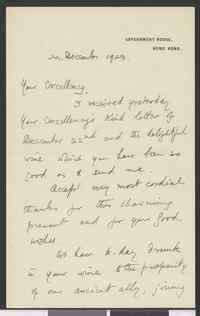 GOVERNMENT HOUSE,
HONG KONG.
December 1929
Your Excellency,
I received yesterday
Your Excellency's kind letter of
December 22nd and the delightful
wine which you have been so
good as to send me.
Accept my most cordial
thanks for this charming
present and for your good
wishes.
We have to-day drunk
in your wine to the prosperity
of our ancient ally, joining